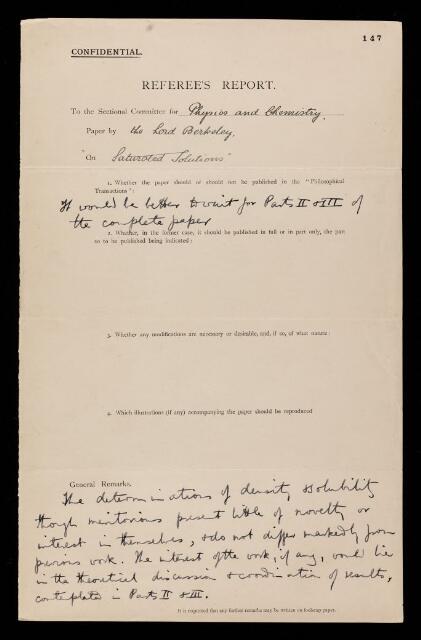 147
CONFIDENTIAL.
REFEREE'S REPORT.
To the Sectional Committee for Physics and Chemistry.
Paper by the Lord Berkeley.
"On Saturated Solutions"
1. Whether the paper should or should not be published in the "Philosophical
Transactions":
It would be better to wait for Parts II & III of
the complete paper
2. Whether, in the former case, it should be published in full or in part only, the part
so to be published being indicated:
3. Whether any modifications are necessary or desirable, and, if so, of what nature:
4. Which illustrations (if any) accompanying the paper should be reproduced
General Remarks.
The determinations of density, & solubility
though meritorious present little of novelty or
interest in themselves, & do not differ markedly from
previous work. The interest of the work, if any, would lie
in the theoretical discussion & coordination of results,
contemplated in Parts II & III.
It is requested that any further remarks may be written on foolscap paper.